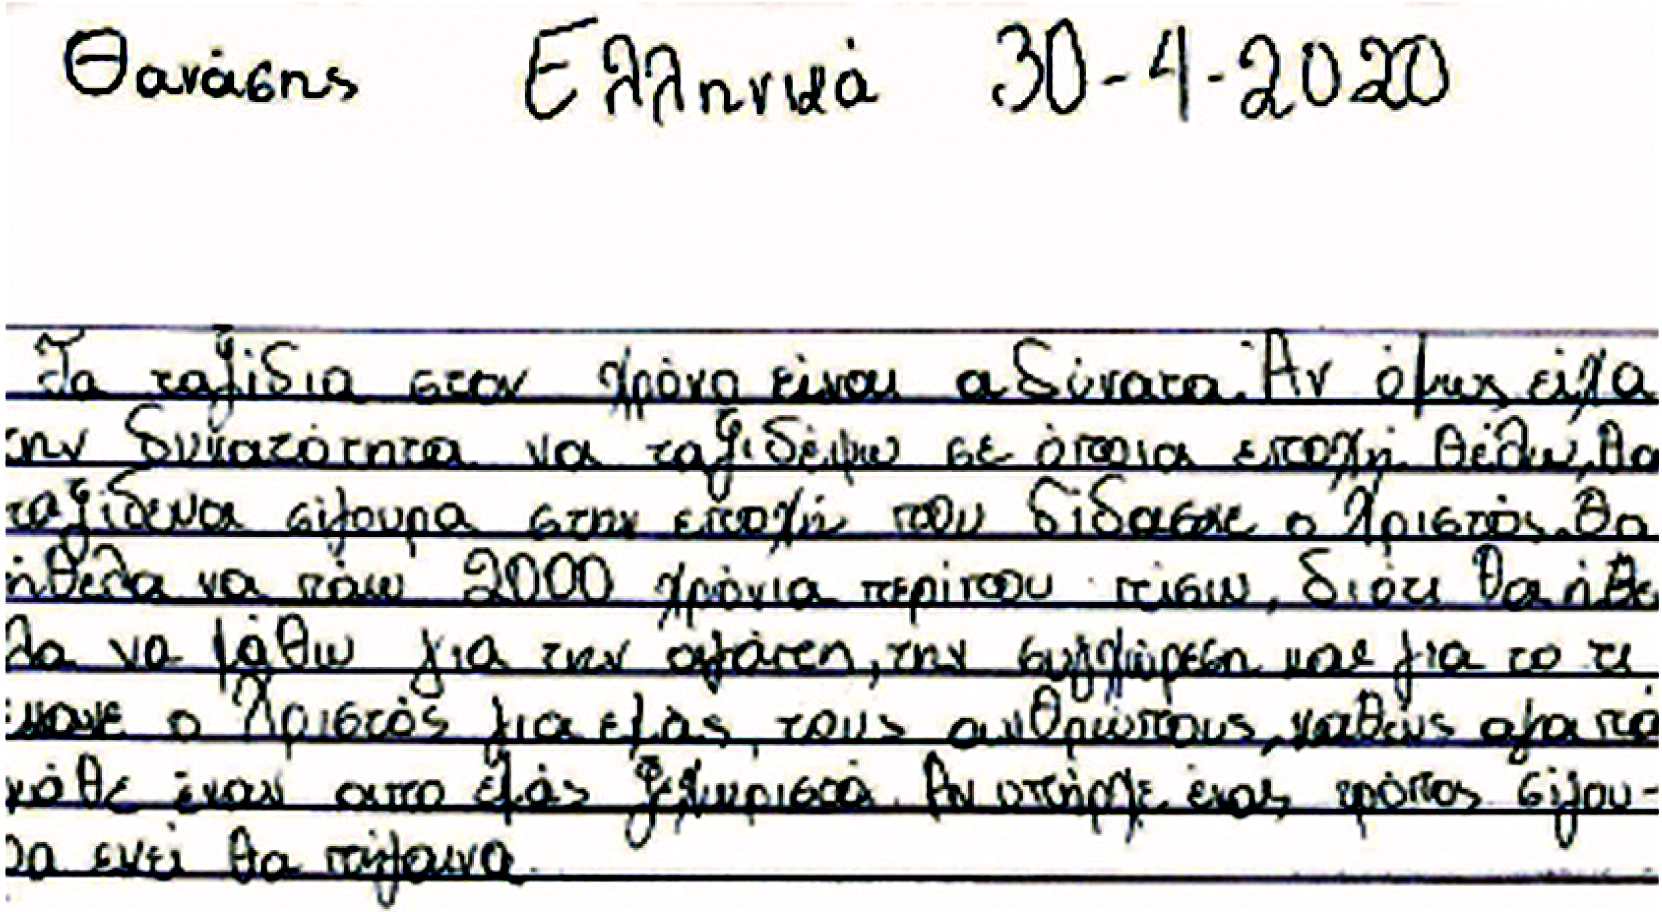 Θανάσης Ελληνικά 30-4-2020
Τα ταξίδια στον χρόνο είναι αδύνατα. Αν όμως είχα
την δυνατότητα να ταξιδέψω σε όποια εποχή θέλω, θα
ταξίδευα σίγουρα στην εποχή που δίδασκε ο Χριστός. Θα
ήθελα να πάω 2000 χρόνια περίπου πίσω, διότι θα ήθε
λα να μάθω για την αγάπη, την συγχώρεση και για το τι
έκανε ο Χριστός για εμάς τους ανθρώπους, καθώς αγαπά
κάθε έναν απο εμάς ξεχωριστά. Αν υπήρχε ένας τρόπος σίγου-
ρα εκεί θα πήγαινα.